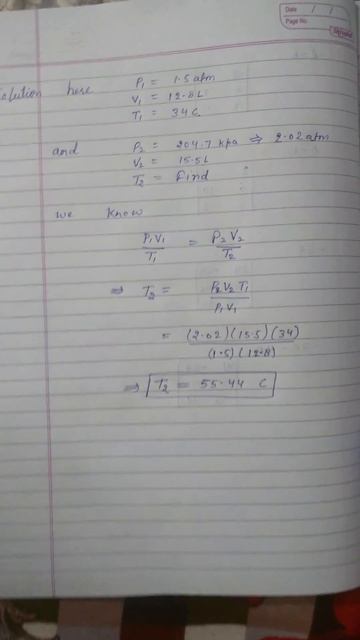 Date / /
Page No.
Solution here P₁ = 1.5 atm
V₁ = 12.8 L
T₁ = 34 C
and P₂ = 204.7 kpa ⇒ 2.02 atm
V₂ = 15.5 L
T₂ = Find
we know
P₁V₁/T₁ = P₂V₂/T₂
⇒ T₂ = P₂V₂T₁/P₁V₁
= (2.02)(15.5)(34)/(1.5)(12.8)
⇒ T₂ = 55.44 C